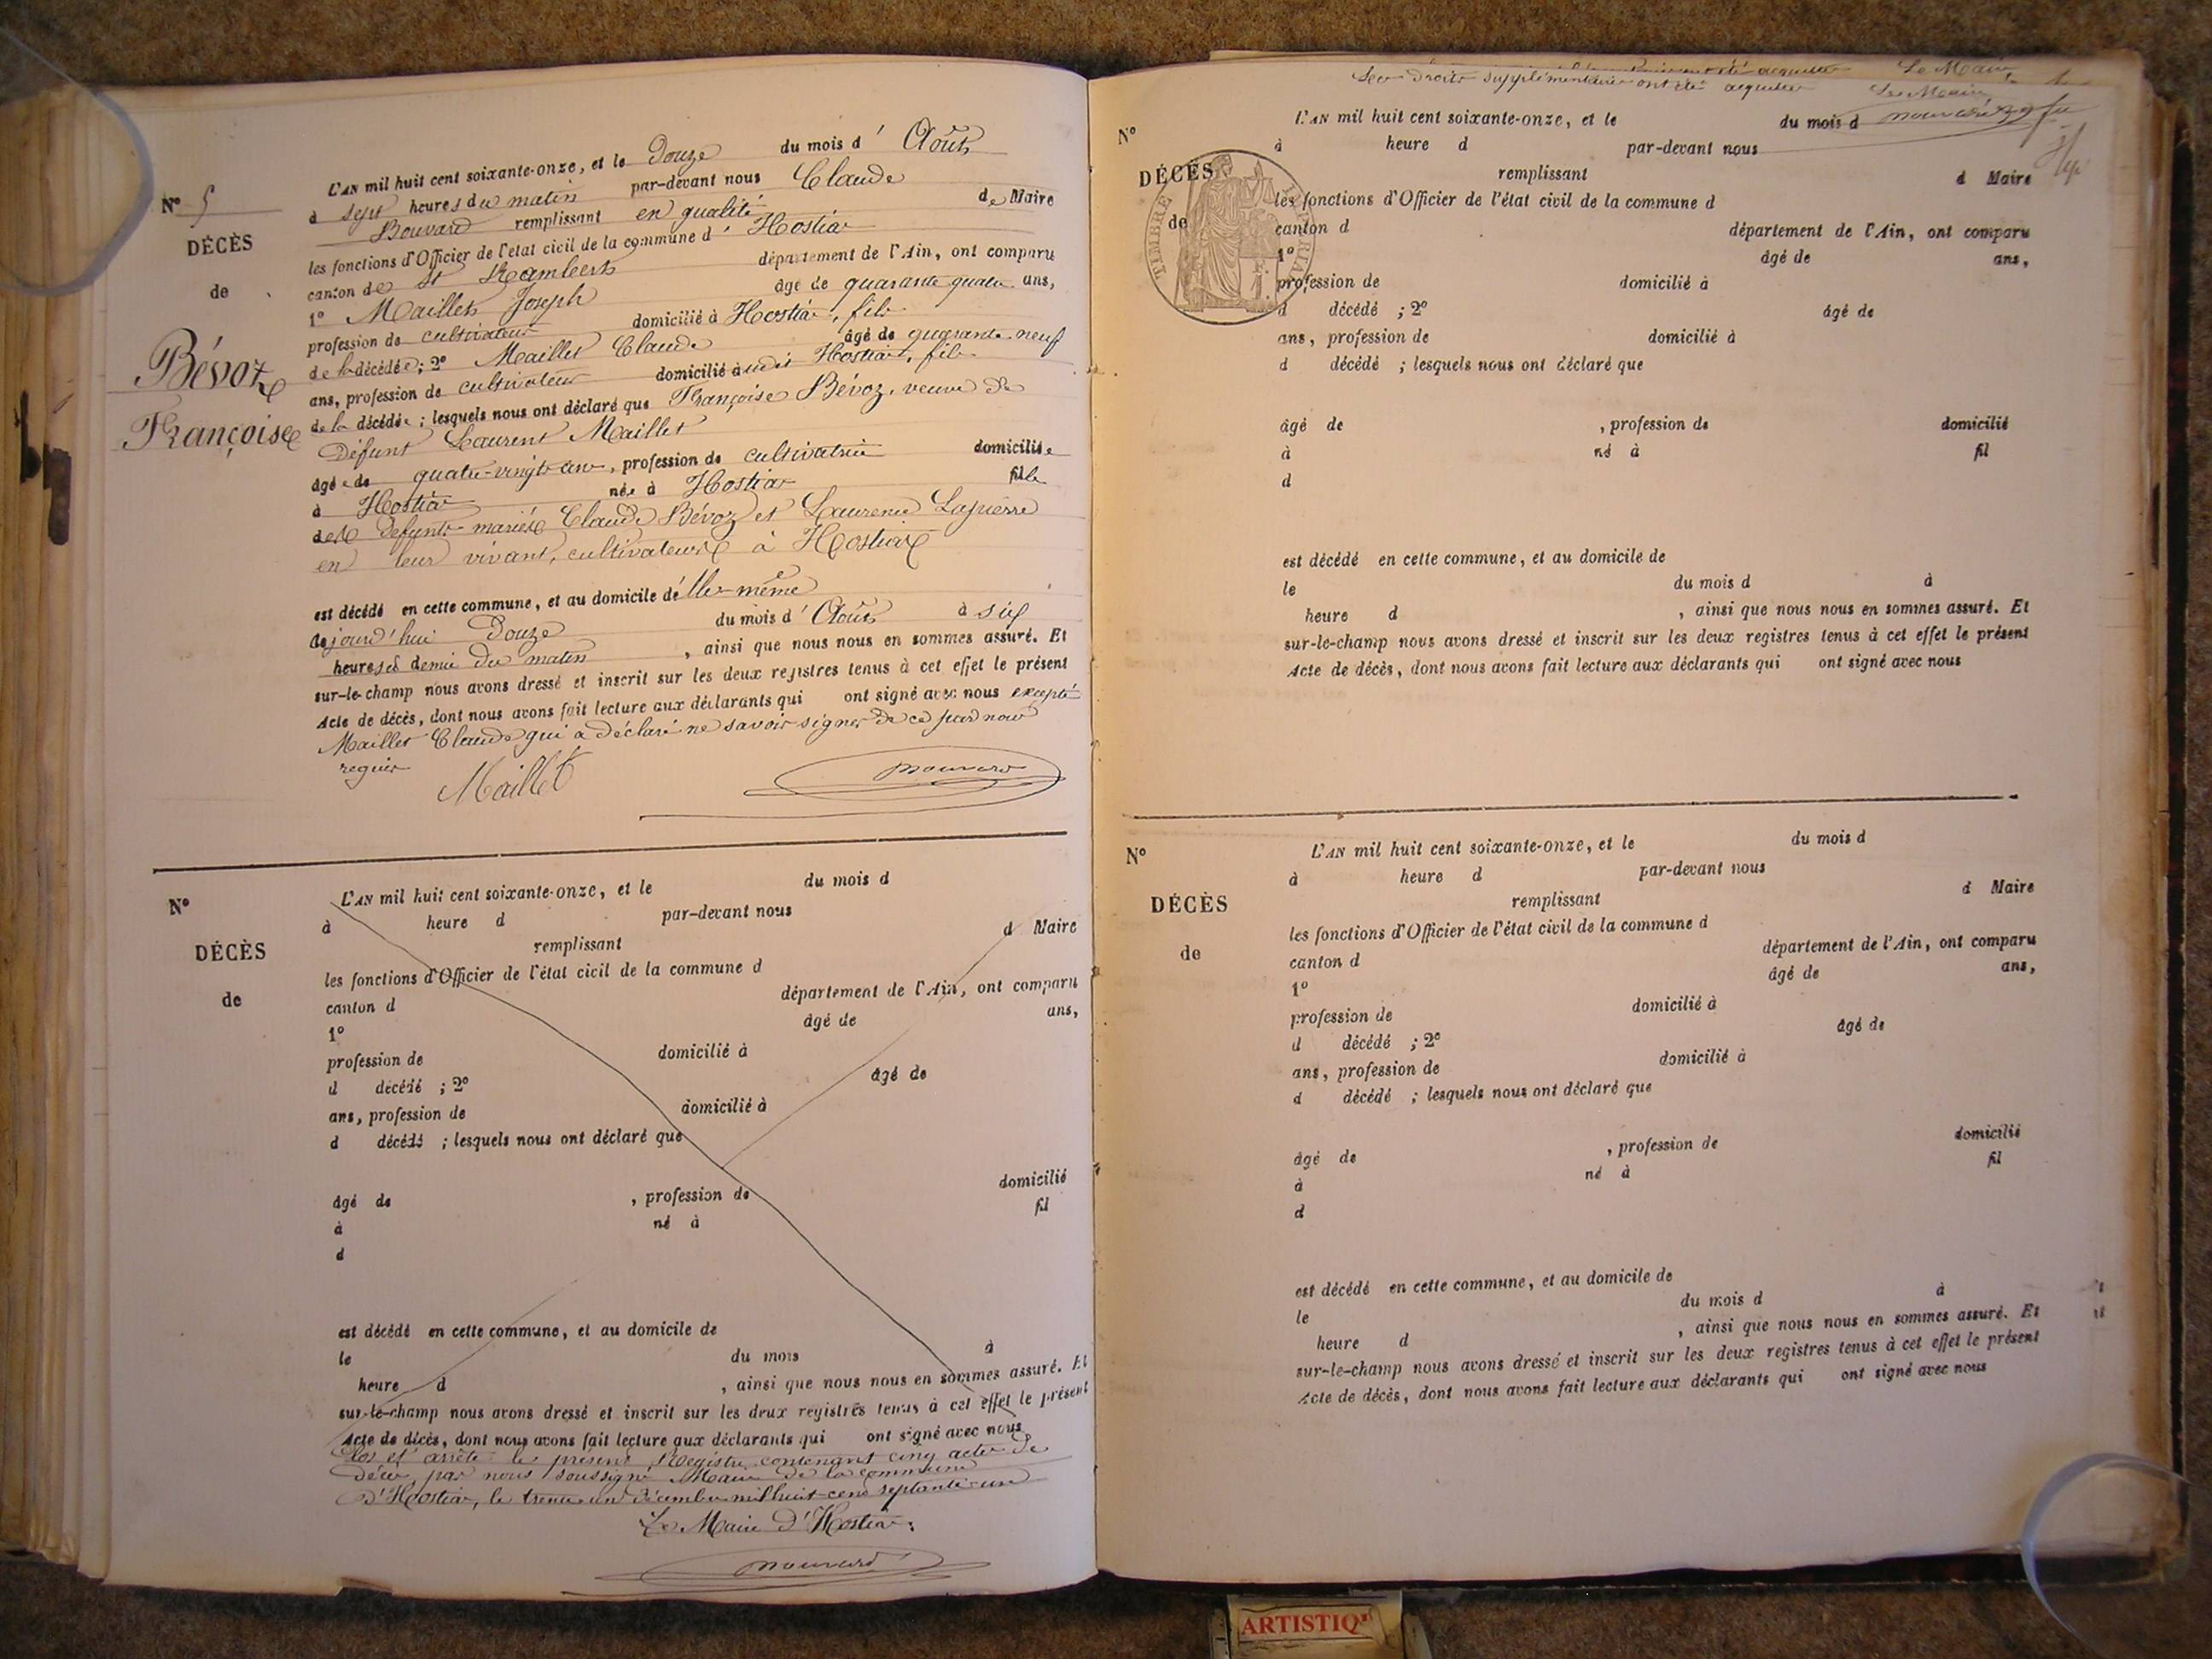 N° 5
DÉCÈS
de
Bévoz
Françoise
L'AN mil huit cent soixante-onze, et le Douze du mois d' Août
à sept heures du matin par-devant nous Claude
Bouvard remplissant en qualité de Maire
les fonctions d'Officier de l'état civil de la commune d' Hostiaz
canton de St Rambert département de l'Ain, ont comparu
1° Maillet Joseph âgé de quarante quatre ans,
profession de cultivateur domicilié à Hostiaz, fils
de la décédée; 2° Maillet Claude âgé de quarante-neuf
ans, profession de cultivateur domicilié audit Hostiaz, fils
de la décédée; lesquels nous ont déclaré que Françoise Bévoz, veuve de
Défunt Laurent Maillet
âgée de quatre-vingts ans, profession de cultivatrice domiciliée
à Hostiaz née à Hostiaz fille
des Defunts mariés Claude Bévoz et Laurence Lapierre
en leur vivant, cultivateurs à Hostiaz
est décédé en cette commune, et au domicile d'elle-même
cejourd'hui Douze du mois d' Août à six
heures et demie du matin, ainsi que nous nous en sommes assuré. Et
sur-le-champ nous avons dressé et inscrit sur les deux registres tenus à cet effet le présent
Acte de décès, dont nous avons fait lecture aux déclarants qui ont signé avec nous excepté
Maillet Claude qui a déclaré ne savoir signer de ce par nous
requis
Maillet Bouvard
N°
DÉCÈS
de
L'AN mil huit cent soixante-onze, et le du mois d
à heure d par-devant nous
remplissant d Maire
les fonctions d'Officier de l'état civil de la commune d
canton d département de l'Ain, ont comparu
1° âgé de ans,
profession de domicilié à
d décédé ; 2° âgé de
ans, profession de domicilié à
d décédé ; lesquels nous ont déclaré que
âgé de , profession de domicilié
à né à fil
d
est décédé en cette commune, et au domicile de
le du mois à
heure d , ainsi que nous nous en sommes assuré. Et
sur-le-champ nous avons dressé et inscrit sur les deux registres tenus à cet effet le présent
Acte de décès, dont nous avons fait lecture aux déclarants qui ont signé avec nous
Clos et arrêté le présent Registre contenant cinq actes de
décès, par nous soussigné Maire de la commune
d'Hostiaz, le trente un décembre mil huit cent septante-un
Le Maire d'Hostiaz:
Bouvard
Les droits supplémentaires ont été acquittés Le Maire
Bouvard
N°
DÉCÈS
de
TIMBRE IMPERIAL
L'AN mil huit cent soixante-onze, et le du mois d
à heure d par-devant nous
remplissant d Maire
les fonctions d'Officier de l'état civil de la commune d
canton d département de l'Ain, ont comparu
1° âgé de ans,
profession de domicilié à
d décédé ; 2° âgé de
ans, profession de domicilié à
d décédé ; lesquels nous ont déclaré que
âgé de , profession de domicilié
à né à fil
d
est décédé en cette commune, et au domicile de
le du mois d à
heure d , ainsi que nous nous en sommes assuré. Et
sur-le-champ nous avons dressé et inscrit sur les deux registres tenus à cet effet le présent
Acte de décès, dont nous avons fait lecture aux déclarants qui ont signé avec nous
N°
DÉCÈS
de
L'AN mil huit cent soixante-onze, et le du mois d
à heure d par-devant nous
remplissant d Maire
les fonctions d'Officier de l'état civil de la commune d
canton d département de l'Ain, ont comparu
1° âgé de ans,
profession de domicilié à
d décédé ; 2° âgé de
ans, profession de domicilié à
d décédé ; lesquels nous ont déclaré que
âgé de , profession de domicilié
à né à fil
d
est décédé en cette commune, et au domicile de
le du mois d à
heure d , ainsi que nous nous en sommes assuré. Et
sur-le-champ nous avons dressé et inscrit sur les deux registres tenus à cet effet le présent
Acte de décès, dont nous avons fait lecture aux déclarants qui ont signé avec nous
ARTISTIQ